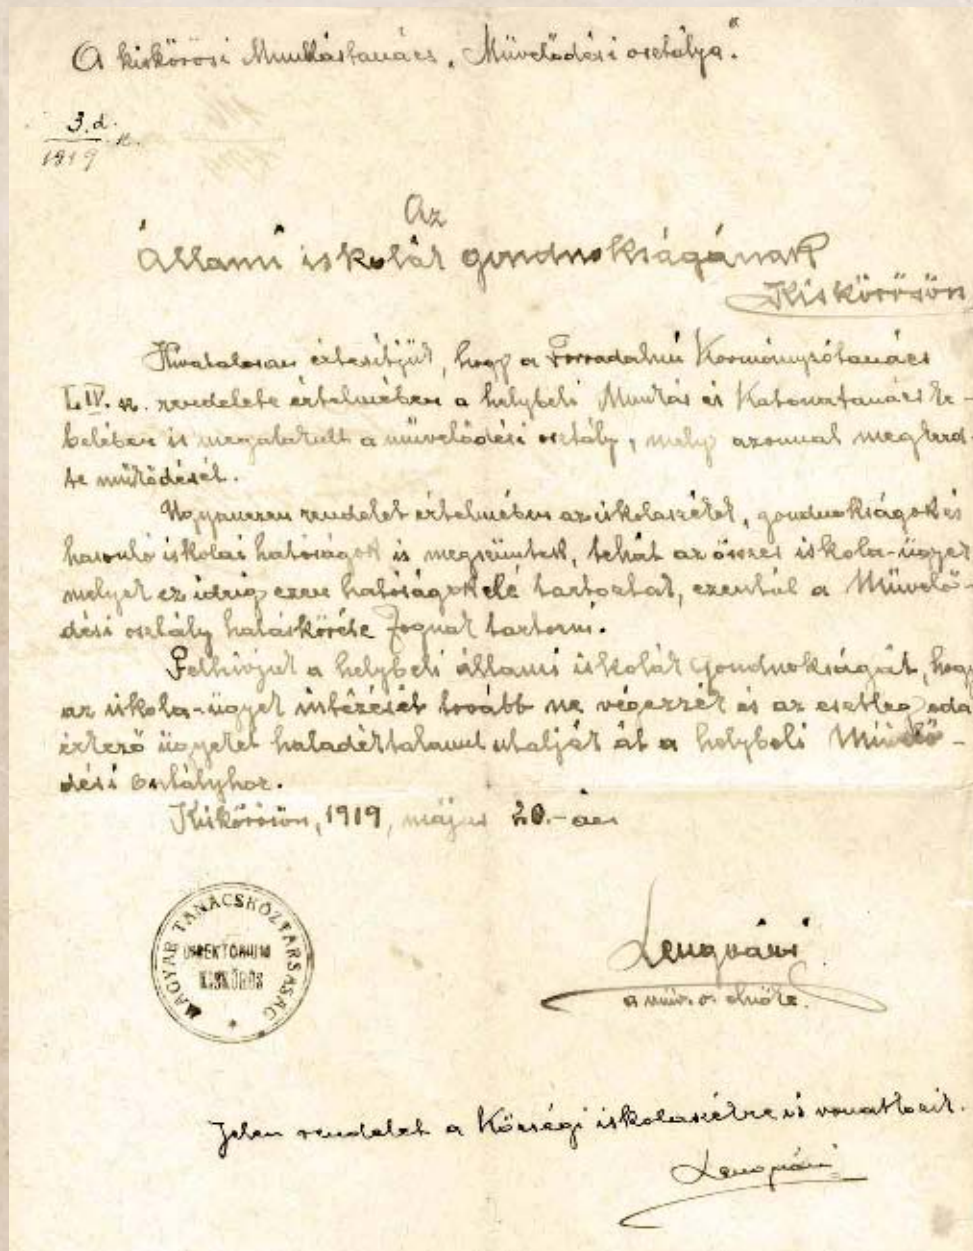 A kiskörösi Munkástanács „Müvelődési osztálya."
3. d.
1919 sz.
Az
Állami iskolák gondnokságának
Kiskőrösön
Hivatalosan értesítjük, hogy a Forradalmi Kormányzótanács
LIV. sz. rendelete értelmében a helybeli Munkás és Katonatanács ke-
belében is megalakult a müvelődési osztály, mely azonnal megkezd-
te müködését.
Ugyanezen rendelet értelmében az iskolaszékek, gondnokságok és
hasonló iskolai hatóságok is megszüntek, tehát az összes iskola-ügyek
melyek ez ideig ezen hatóságok elé tartoztak, ezentúl a Müvelő-
dési osztály hatáskörébe fognak tartozni.
Felhívjuk a helybeli állami iskolák Gondnokságát, hogy
az iskola-ügyek intézését tovább ne végezzék és az esetleg oda
érkező ügyeket haladéktalanul utalják át a helybeli Müvelő-
dési Osztályhoz.
Kiskőrösön, 1919, május 20.-án
MAGYAR TANÁCSKÖZTÁRSASÁG
DIREKTÓRIUM
KISKŐRÖS
Lengvári
a müv. o. elnöke.
Jelen rendelet a Községi iskolaszékre is vonatkozik.
Lengvári